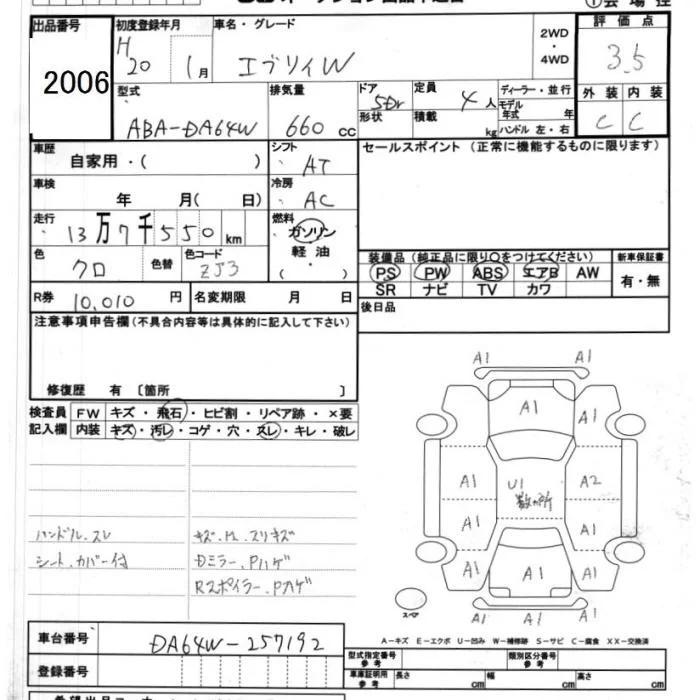 出品番号
2006
初度登録年月
H 20 1月
車名・グレード
エブリィW
2WD
・
4WD
①会場控
評価点
3.5
型式
ABA-DA64W
排気量
660 cc
ドア
5Dr
形状
定員
4人
積載
kg
ディーラー・並行
モデル
年式 年
ハンドル 左・右
外装 内装
C C
車歴
自家用・( )
シフト
AT
セールスポイント (正常に機能するものに限ります)
車検
年 月( 日)
冷房
AC
走行
13万7千550km
燃料
ガソリン
軽油
・( )
色
クロ
色替
色コード
ZJ3
装備品 (純正品に限り○をつけてください)
新車保証書
PS PW ABS エアB AW
有・無
SR ナビ TV カワ
R券 10,010 円
名変期限 月 日
後日品
注意事項申告欄 (不具合内容等は具体的に記入して下さい)
修復歴 有 〔箇所 〕
検査員 FW キズ・飛石・ヒビ割・リペア跡・×要
記入欄 内装 キズ・汚レ・コゲ・穴・スレ・キレ・破レ
ハンドル.スレ
キズ.H.スリキズ
シート.カバー付
Dミラー.Pハゲ
Rスポイラー.Pハゲ
A1 A1
A1
A1 U1 A2
数カ所
A1 A1
A1 A1 A1
A1 A1 A1
スペア
A-キズ E-エクボ U-凹み W-補修跡 S-サビ C-腐食 XX-交換済
車台番号 DA64W-257192
登録番号
型式指定番号
参考
類別区分番号
参考
車庫証明用
参考
長さ cm 幅 cm 高さ cm